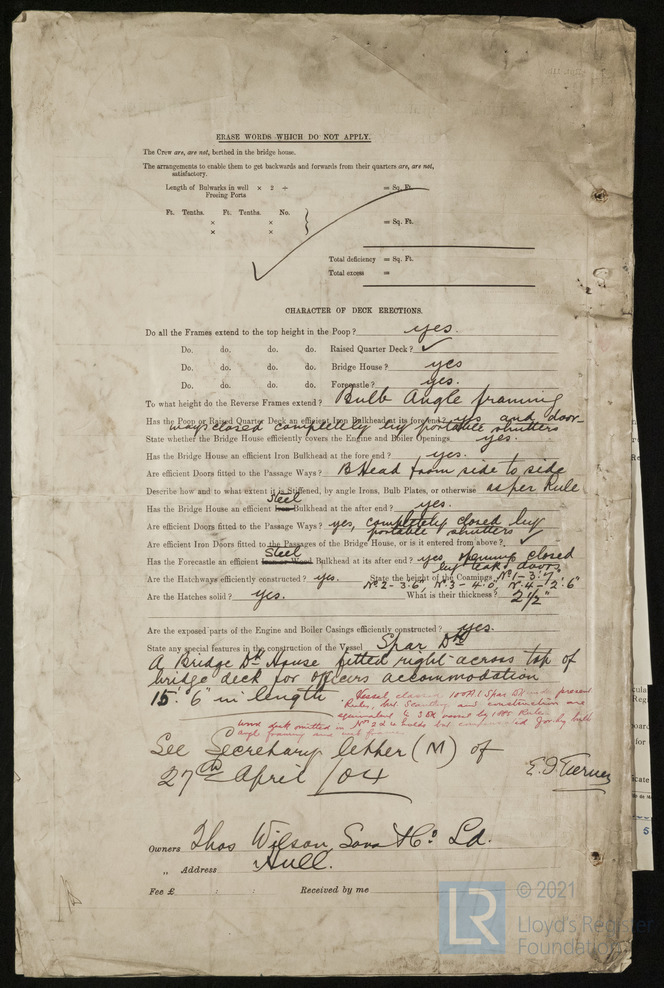 ERASE WORDS WHICH DO NOT APPLY.
The Crew are, are not, berthed in the bridge house.
The arrangements to enable them to get backwards and forwards from their quarters are, are not,
satisfactory.
Length of Bulwarks in well × 2 ÷ = Sq. Ft.
Freeing Ports
Ft. Tenths. Ft. Tenths. No.
× × = Sq. Ft.
× ×
Total deficiency = Sq. Ft.
Total excess =
CHARACTER OF DECK ERECTIONS.
Do all the Frames extend to the top height in the Poop? yes.
Do. do. do. do. Raised Quarter Deck? ✓
Do. do. do. do. Bridge House? yes
Do. do. do. do. Forecastle? yes.
To what height do the Reverse Frames extend? Bulb Angle framing
Has the Poop or Raised Quarter Deck an efficient Iron Bulkhead at its fore end? yes and door-
ways closed completely by portable shutters
State whether the Bridge House efficiently covers the Engine and Boiler Openings yes.
Has the Bridge House an efficient Iron Bulkhead at the fore end? yes.
Are efficient Doors fitted to the Passage Ways? BHead from side to side
Describe how and to what extent it is Stiffened, by angle Irons, Bulb Plates, or otherwise as per Rule
Steel
Has the Bridge House an efficient Iron Bulkhead at the after end? yes.
Are efficient Doors fitted to the Passage Ways? yes, completely closed by
portable shutters
Are efficient Iron Doors fitted to the Passages of the Bridge House, or is it entered from above? ✓
Steel
Has the Forecastle an efficient Iron or Wood Bulkhead at its after end? yes opening closed
by teak doors
Are the Hatchways efficiently constructed? yes. State the height of the Coamings Nº 1 - 3'.7"
Nº 2 - 3'.6" Nº 3 - 4'.0" Nº 4 - 2'.6"
Are the Hatches solid? yes. What is their thickness? 2½"
Are the exposed parts of the Engine and Boiler Casings efficiently constructed? yes.
State any special features in the construction of the Vessel Spar Dk
A Bridge Dk House fitted right across top of
bridge deck for officers accommodation
15'. 6" in length
Vessel classing 100A1 Spar Dk present
Rules, but Scantling and construction are
equivalent to 3 Dk vessel by Rules
wood deck omitted in Nos 2 & holds but compensated for by bulb
angle framing and
See Secretary letter (M) of
27th April /04
E. J. Tierney
Owners Thos Wilson, Sons & Co. Ld.
„ Address Hull.
Fee £ : : Received by me
LR
© 2021
Lloyd's Register
Foundation
5